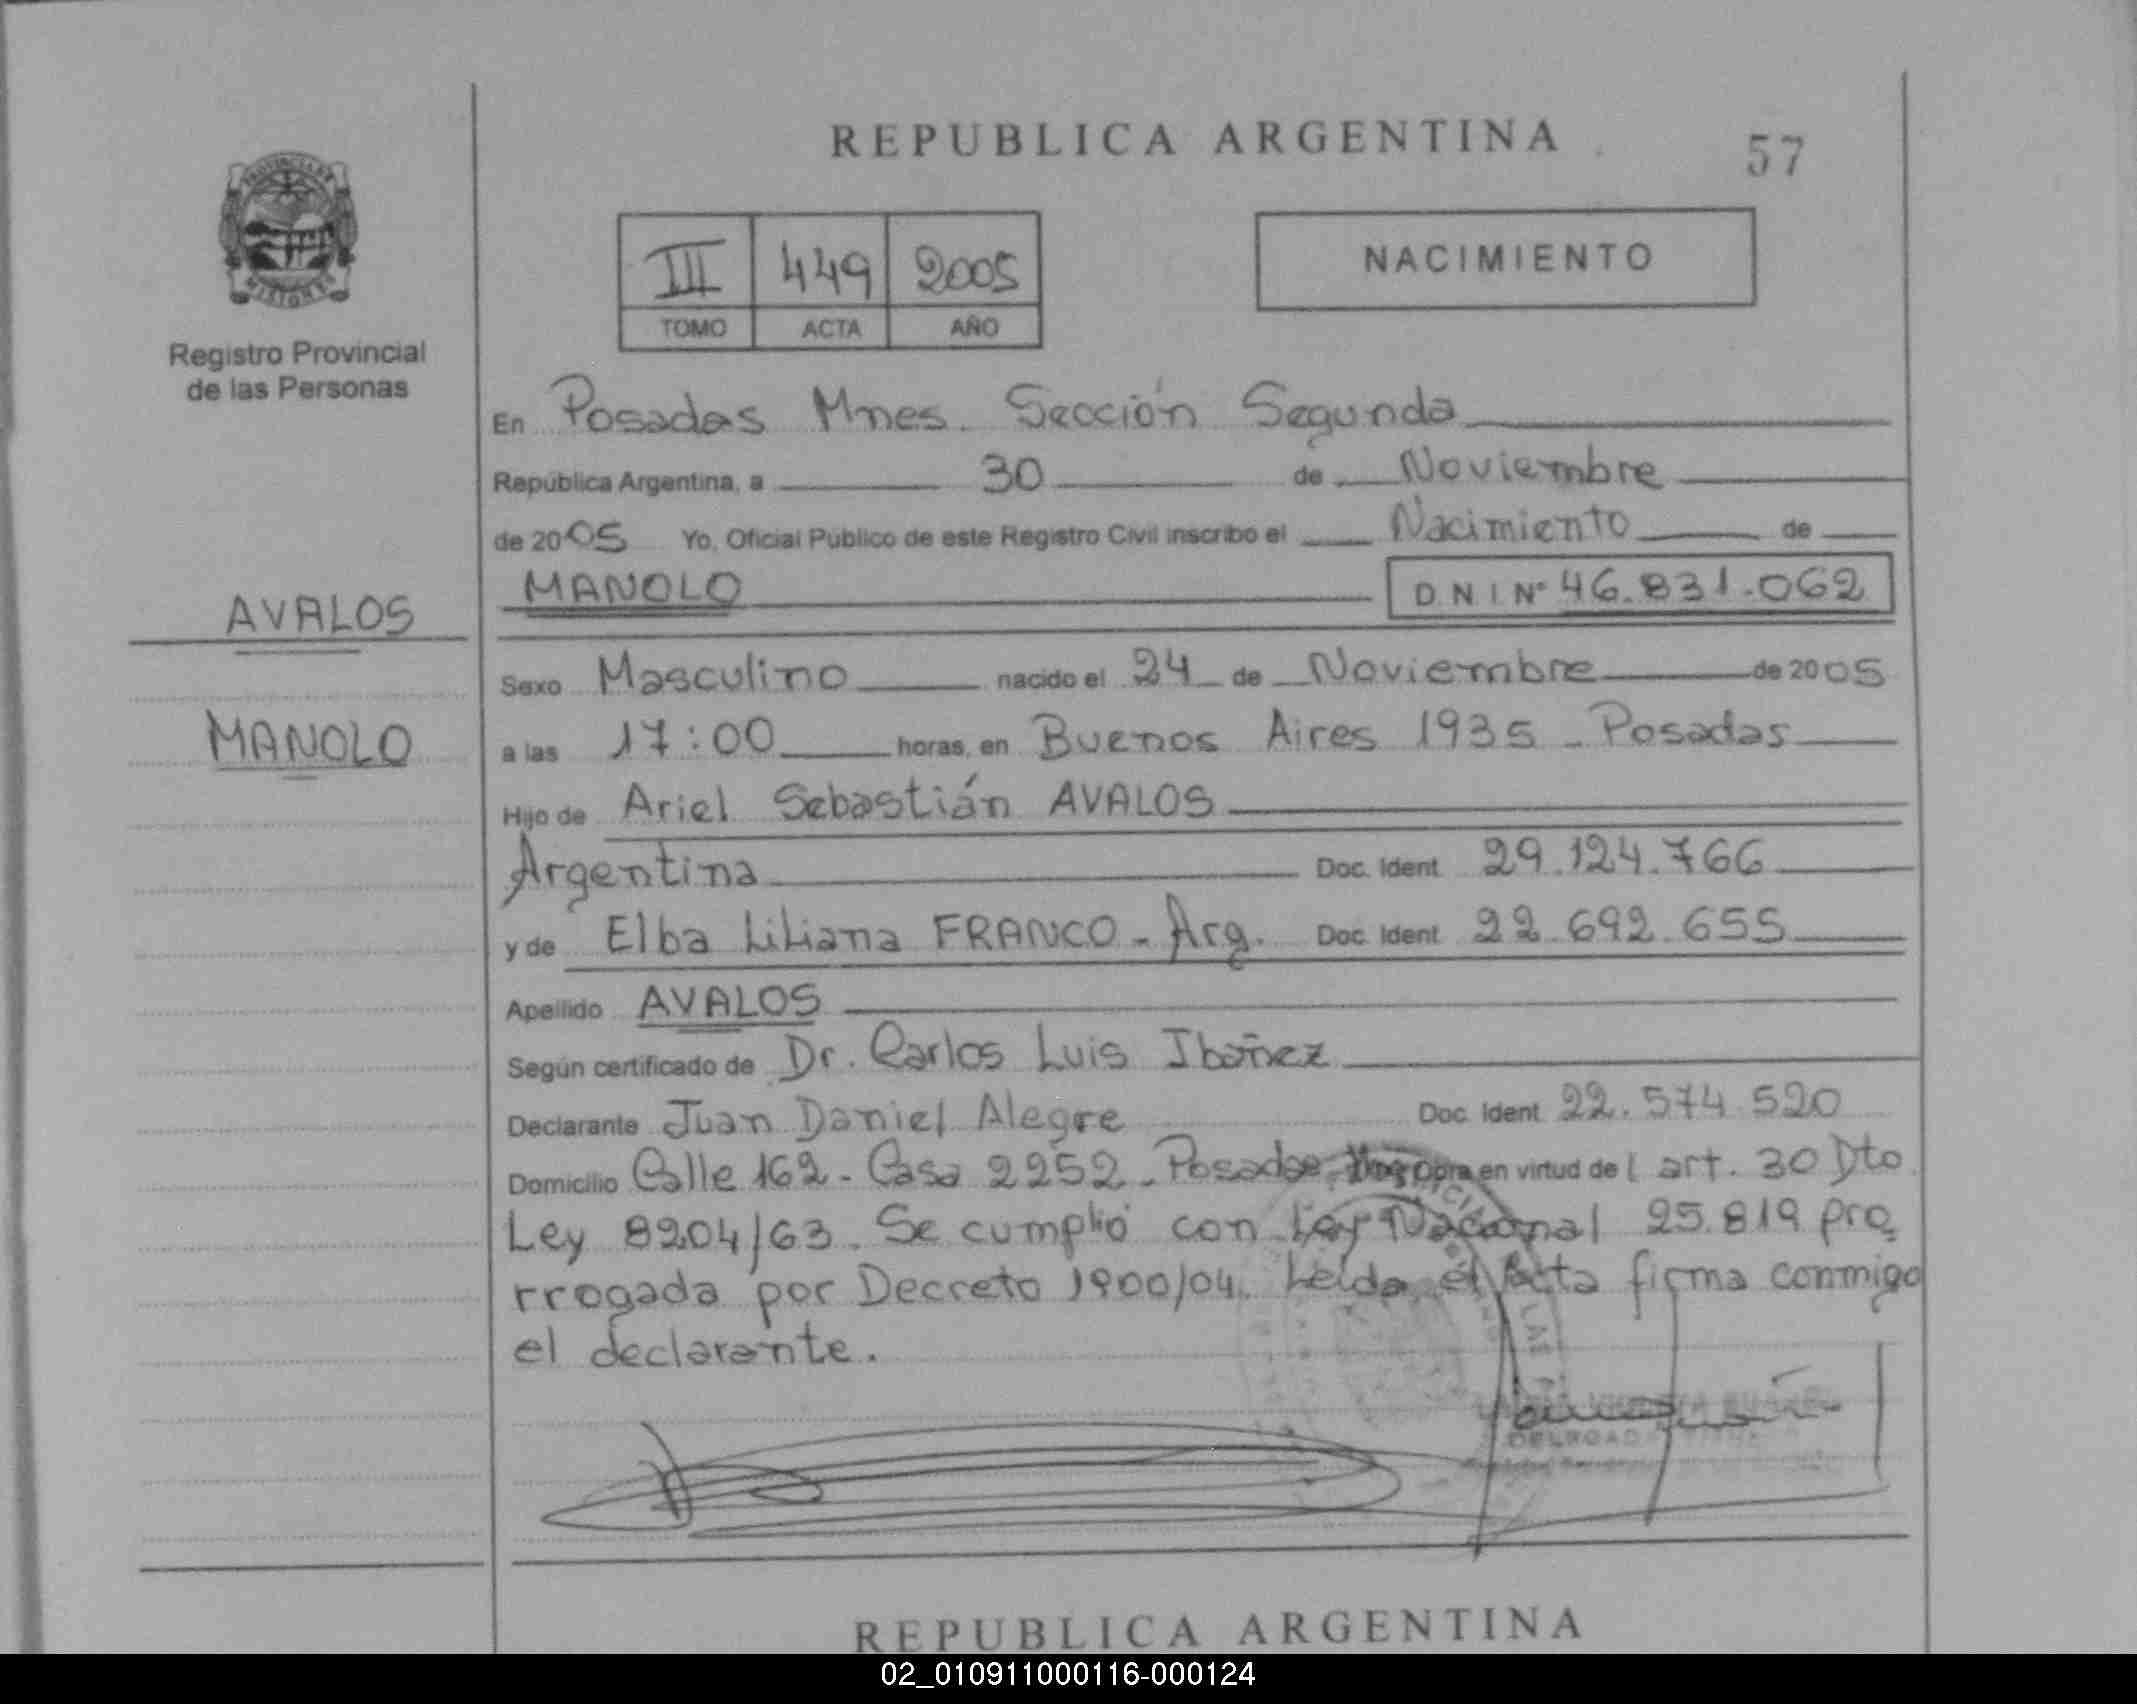 REPUBLICA ARGENTINA
57
III 449 2005
TOMO ACTA AÑO
NACIMIENTO
PROVINCIA DE
MISIONES
Registro Provincial
de las Personas
AVALOS
MANOLO
En Posadas Mnes. Sección Segunda
República Argentina, a 30 de Noviembre
de 2005 Yo, Oficial Público de este Registro Civil inscribo el Nacimiento de
MANOLO D.N.I. Nº 46.831.062
Sexo Masculino nacido el 24 de Noviembre de 2005
a las 17:00 horas, en Buenos Aires 1935 - Posadas
Hijo de Ariel Sebastián AVALOS
Argentina Doc. Ident. 29.124.766
y de Elba Liliana FRANCO - Arg. Doc. Ident 22.692.655
Apellido AVALOS
Según certificado de Dr. Carlos Luis Ibañez
Declarante Juan Daniel Alegre Doc. Ident. 22.574.520
Domicilio Calle 162 - Casa 2252 - Posadas obra en virtud del art. 30 Dto
Ley 8204/63. Se cumplió con Ley Nacional 25.819 pro
rrogada por Decreto 1900/04. Leída el Acta firma conmigo
el declarante.
DELEGADA
REPUBLICA ARGENTINA
02_010911000116-000124